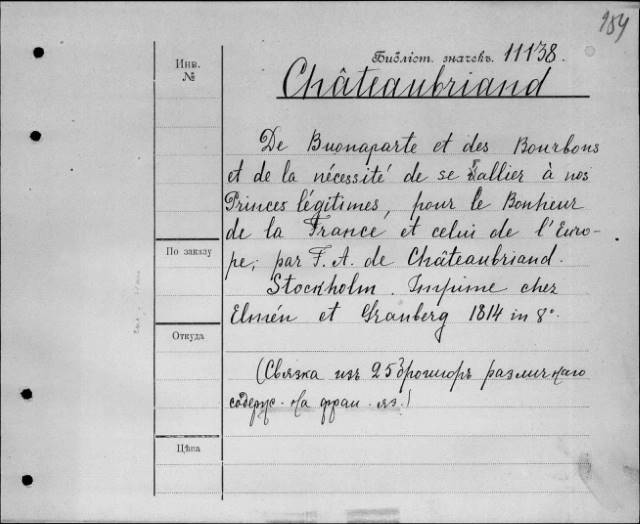 184
Библіот. значекъ. 11138.
Инв.
№
Châteaubriand
De Buonaparte et des Bourbons
et de la nécessité de se rallier à nos
Princes légitimes, pour le Bonheur
de la France et celui de l'Euro-
pe; par F. A. de Châteaubriand.
По заказу
Stockholm. Imprime chez
Elmén et Granberg 1814 in 8º.
Откуда
(Связка изъ 25 брошюръ различнаго
содерж. на фран. яз.)
Цѣна